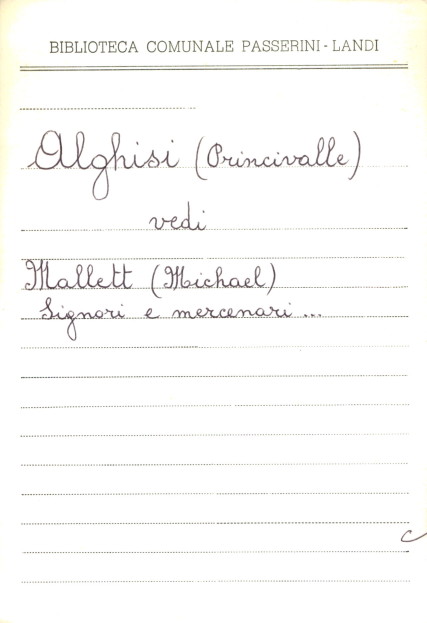 BIBLIOTECA COMUNALE PASSERINI - LANDI
Alghisi (Princivalle)
vedi
Mallett (Michael)
Signori e mercenari ...
c